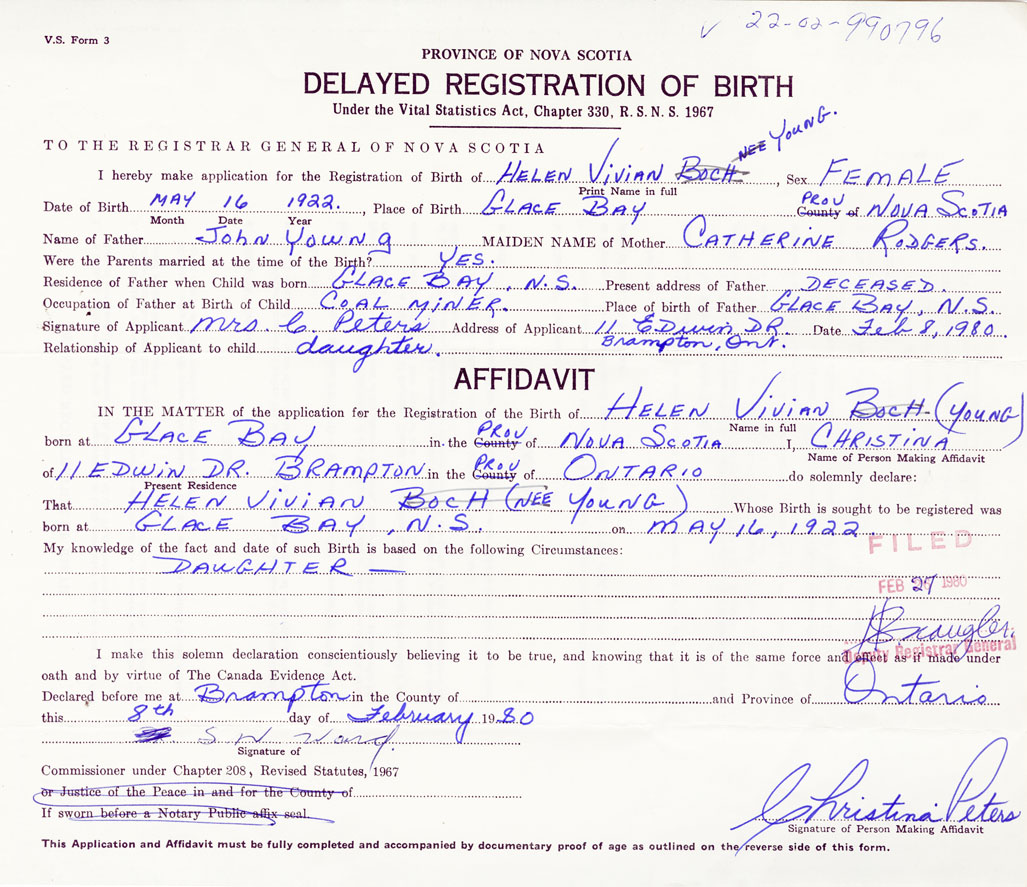 V.S. Form 3
✓ 22-02-990796
PROVINCE OF NOVA SCOTIA
DELAYED REGISTRATION OF BIRTH
Under the Vital Statistics Act, Chapter 330, R.S.N.S. 1967
TO THE REGISTRAR GENERAL OF NOVA SCOTIA
NEE YOUNG.
I hereby make application for the Registration of Birth of HELEN VIVIAN BOCH, Sex FEMALE
Print Name in full
Date of Birth MAY 16 1922., Place of Birth GLACE BAY PROV County of NOVA SCOTIA
Month Date Year
Name of Father JOHN YOUNG MAIDEN NAME of Mother CATHERINE RODGERS.
Were the Parents married at the time of the Birth? YES.
Residence of Father when Child was born GLACE BAY, N.S. Present address of Father DECEASED.
Occupation of Father at Birth of Child COAL MINER. Place of birth of Father GLACE BAY, N.S.
Signature of Applicant Mrs C. Peters Address of Applicant 11 EDWIN DR. Date Feb 8, 1980.
Relationship of Applicant to child daughter. Brampton, Ont.
AFFIDAVIT
IN THE MATTER of the application for the Registration of the Birth of HELEN VIVIAN BOCH (YOUNG)
Name in full
born at GLACE BAY in the PROV County of NOVA SCOTIA I, CHRISTINA
Name of Person Making Affidavit
of 11 EDWIN DR. BRAMPTON in the PROV County of ONTARIO do solemnly declare:
Present Residence
That HELEN VIVIAN BOCH (NEE YOUNG) Whose Birth is sought to be registered was
born at GLACE BAY, N.S. on MAY 16, 1922
My knowledge of the fact and date of such Birth is based on the following Circumstances:
FILED
DAUGHTER —
FEB 27 1980
Deputy Registrar General
I make this solemn declaration conscientiously believing it to be true, and knowing that it is of the same force and effect as if made under
oath and by virtue of The Canada Evidence Act.
Declared before me at Brampton in the County of and Province of Ontario
this 8th day of February 1980
S W Ward
Signature of
Commissioner under Chapter 208, Revised Statutes, 1967
or Justice of the Peace in and for the County of
If sworn before a Notary Public affix seal.
Christina Peters
Signature of Person Making Affidavit
This Application and Affidavit must be fully completed and accompanied by documentary proof of age as outlined on the reverse side of this form.